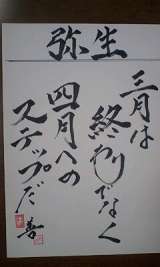 弥生
三月は
終わりでなく
四月への
ステップだ